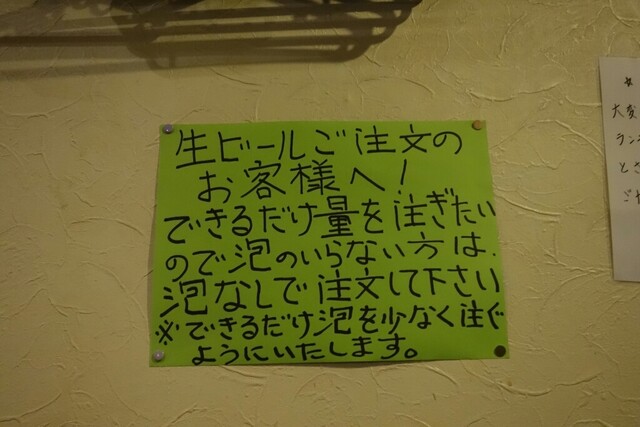 生ビールご注文の
お客様へ!
できるだけ量を注ぎたい
ので泡のいらない方は、
泡なしで注文して下さい
※できるだけ泡を少なく注ぐ
ようにいたします。
大変
ラン